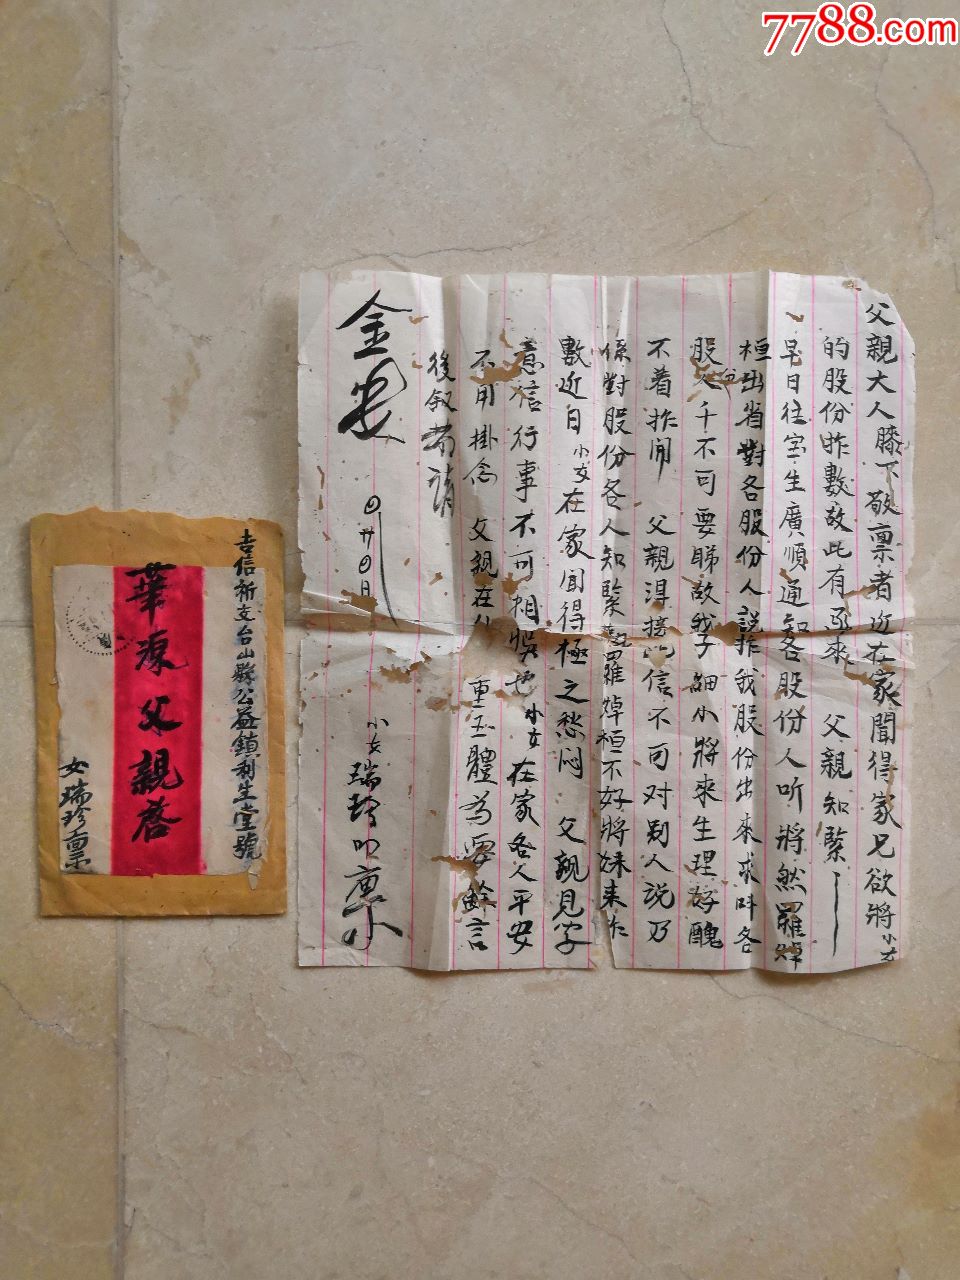 7788.com
父親大人膝下敬稟者近在家聞得家兄欲將小女
的股份拃數故此有函來 父親知緊
早日往字生廣順通知各股份人听將然羅焯
桓出省對各股份人説拃我股份出來求叫各
股人千不可要睇故我子細小將來生理好醜
不着拃聞 父親得接此信不可对别人说乃
係對股份各人知緊羅焯桓不好將妹来作
數近日小女在家聞得極之愁闷 父親見字
意信行事不可相悞也小女在家各人平安
不用掛念 父親在 重玉體為要餘言
後叙 請
金安
小女瑞珍叩稟
四 廿 日
吉信祈支台山縣公益鎮利生堂號
華 父親啓
女瑞珍稟